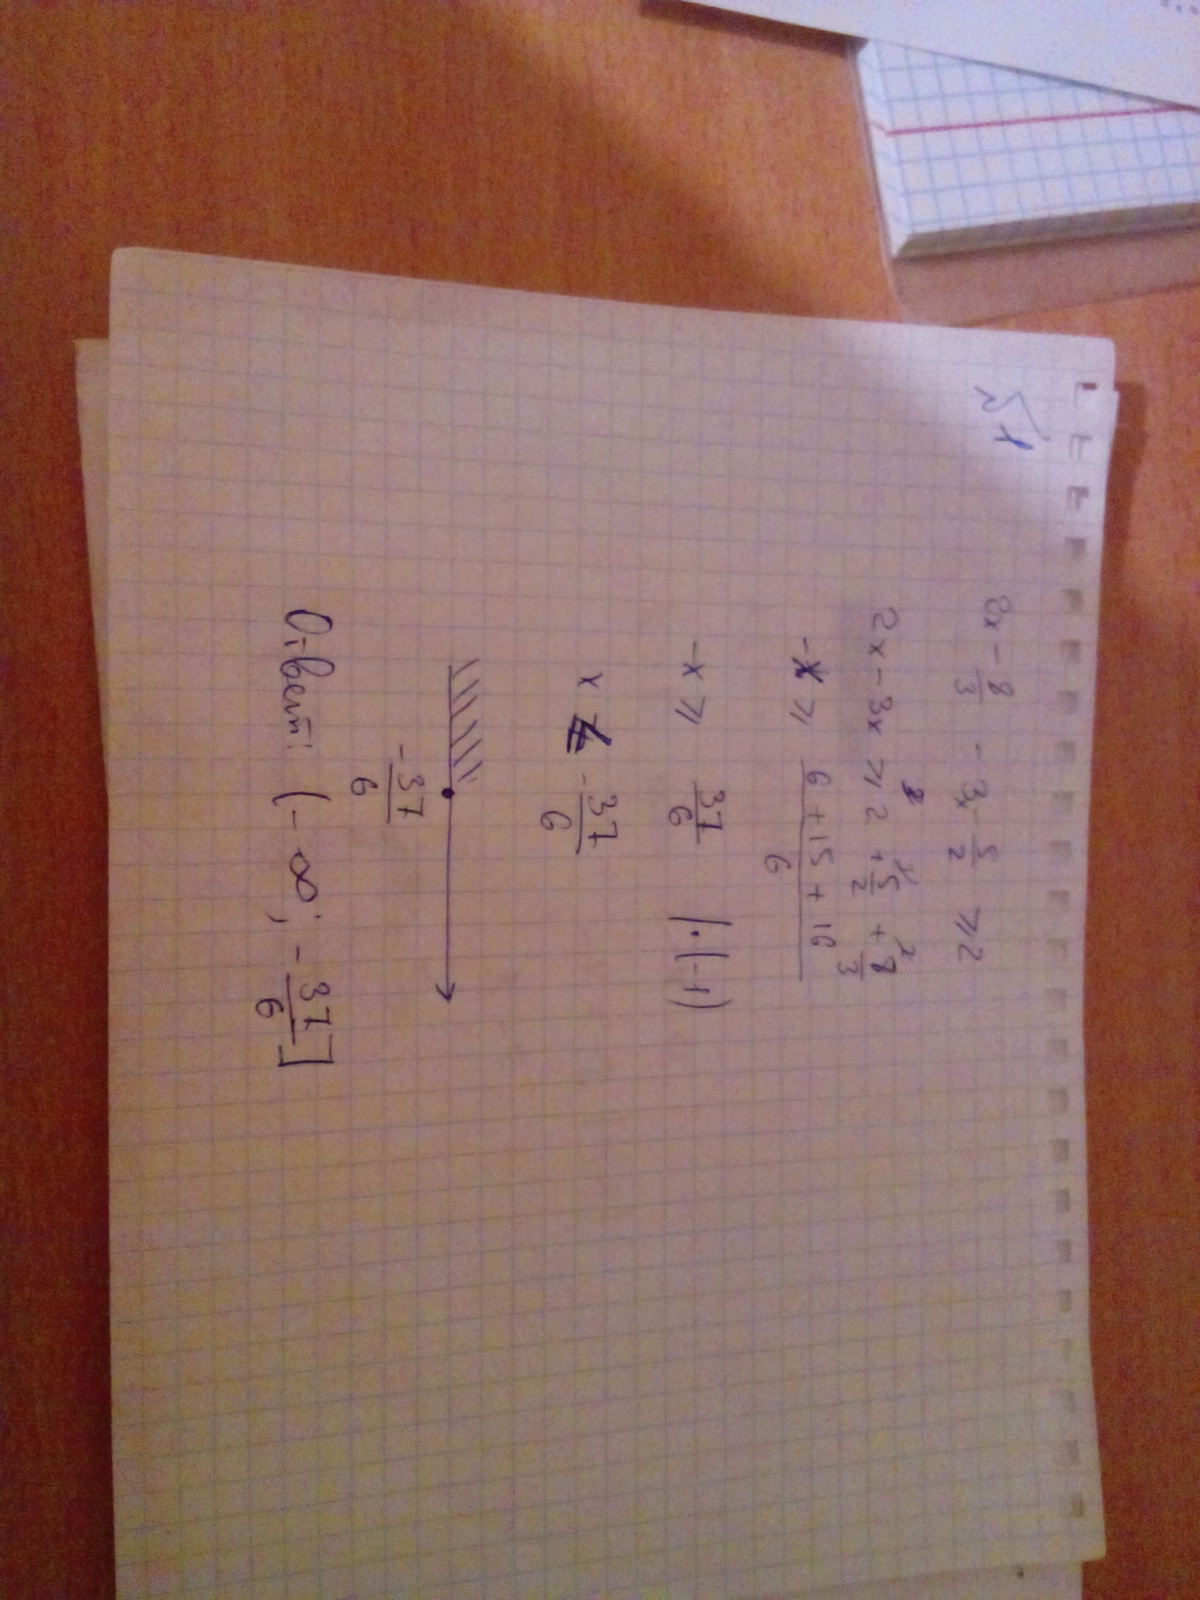 №1
2x - 8/3 - 3x - 5/2 ⩾ 2
2x - 3x ⩾ 2 + 5/2 + 8/3
-x ⩾ (6 + 15 + 16)/6
-x ⩾ 37/6 | · (-1)
x ≤ -37/6
-37/6
Ответ: (-∞; -37/6]